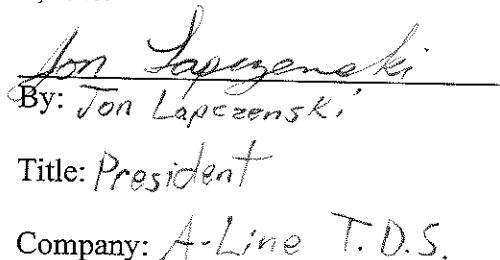 Jon Lapczenski
By: Jon Lapczenski
Title: President
Company: A-Line T.D.S.